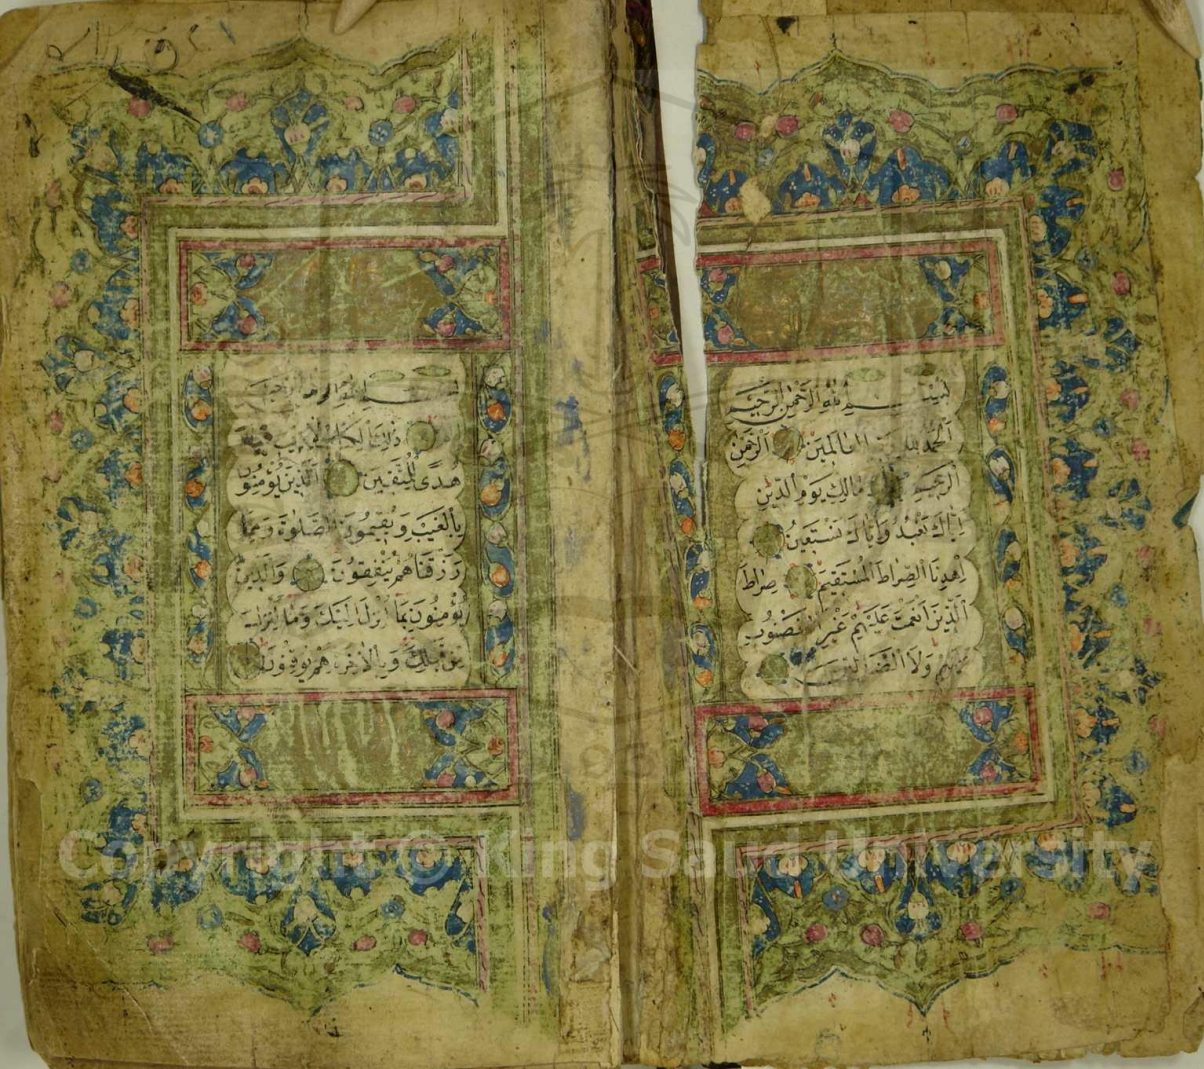 بسم الله الرحمن الرحيم
الحمد لله رب العالمين الرحمن
الرحيم مالك يوم الدين
اياك نعبد واياك نستعين
اهدنا الصراط المستقيم صراط
الذين انعمت عليهم غير المغضوب
عليهم ولا الضالين
بسم الله الرحمن الرحيم
ذلك الكتاب لا ريب فيه
هدى للمتقين الذين يؤمنون
بالغيب ويقيمون الصلوة ومما
رزقناهم ينفقون والذين
يؤمنون بما انزل اليك وما انزل
من قبلك وبالاخرة هم يوقنون
Copyright © King Saud University